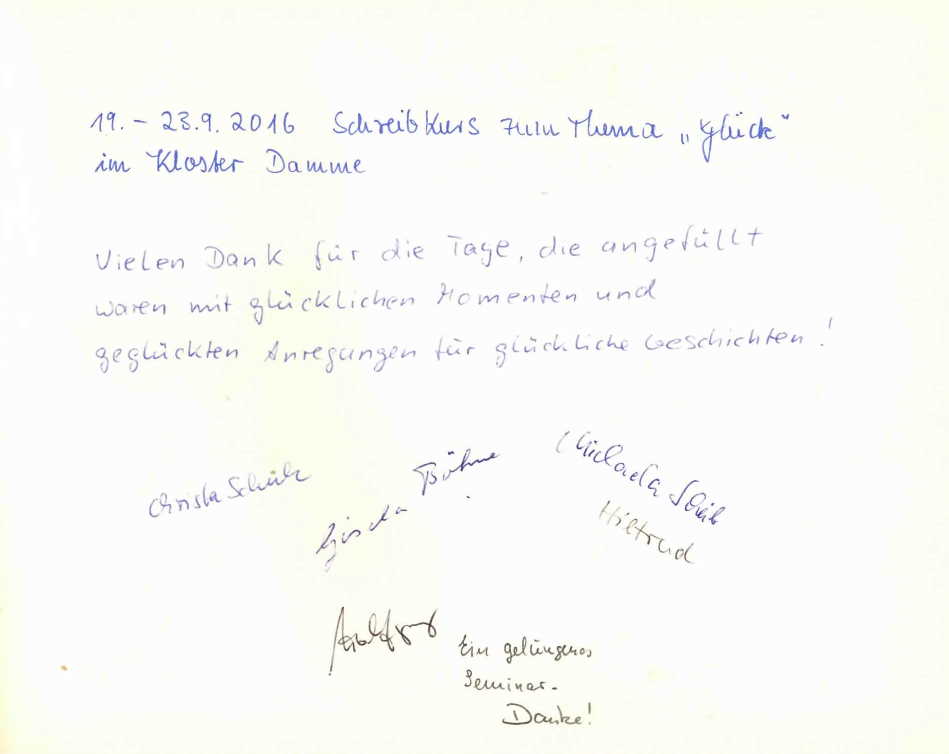 19. - 23.9. 2016 Schreibkurs zum Thema „Glück“
im Kloster Damme
Vielen Dank für die Tage, die angefüllt
waren mit glücklichen Momenten und
geglückten Anregungen für glückliche Geschichten!
Christa
Gisela Böhme
Michaela
Hiltrud
Ein gelungenes
Seminar.
Danke!